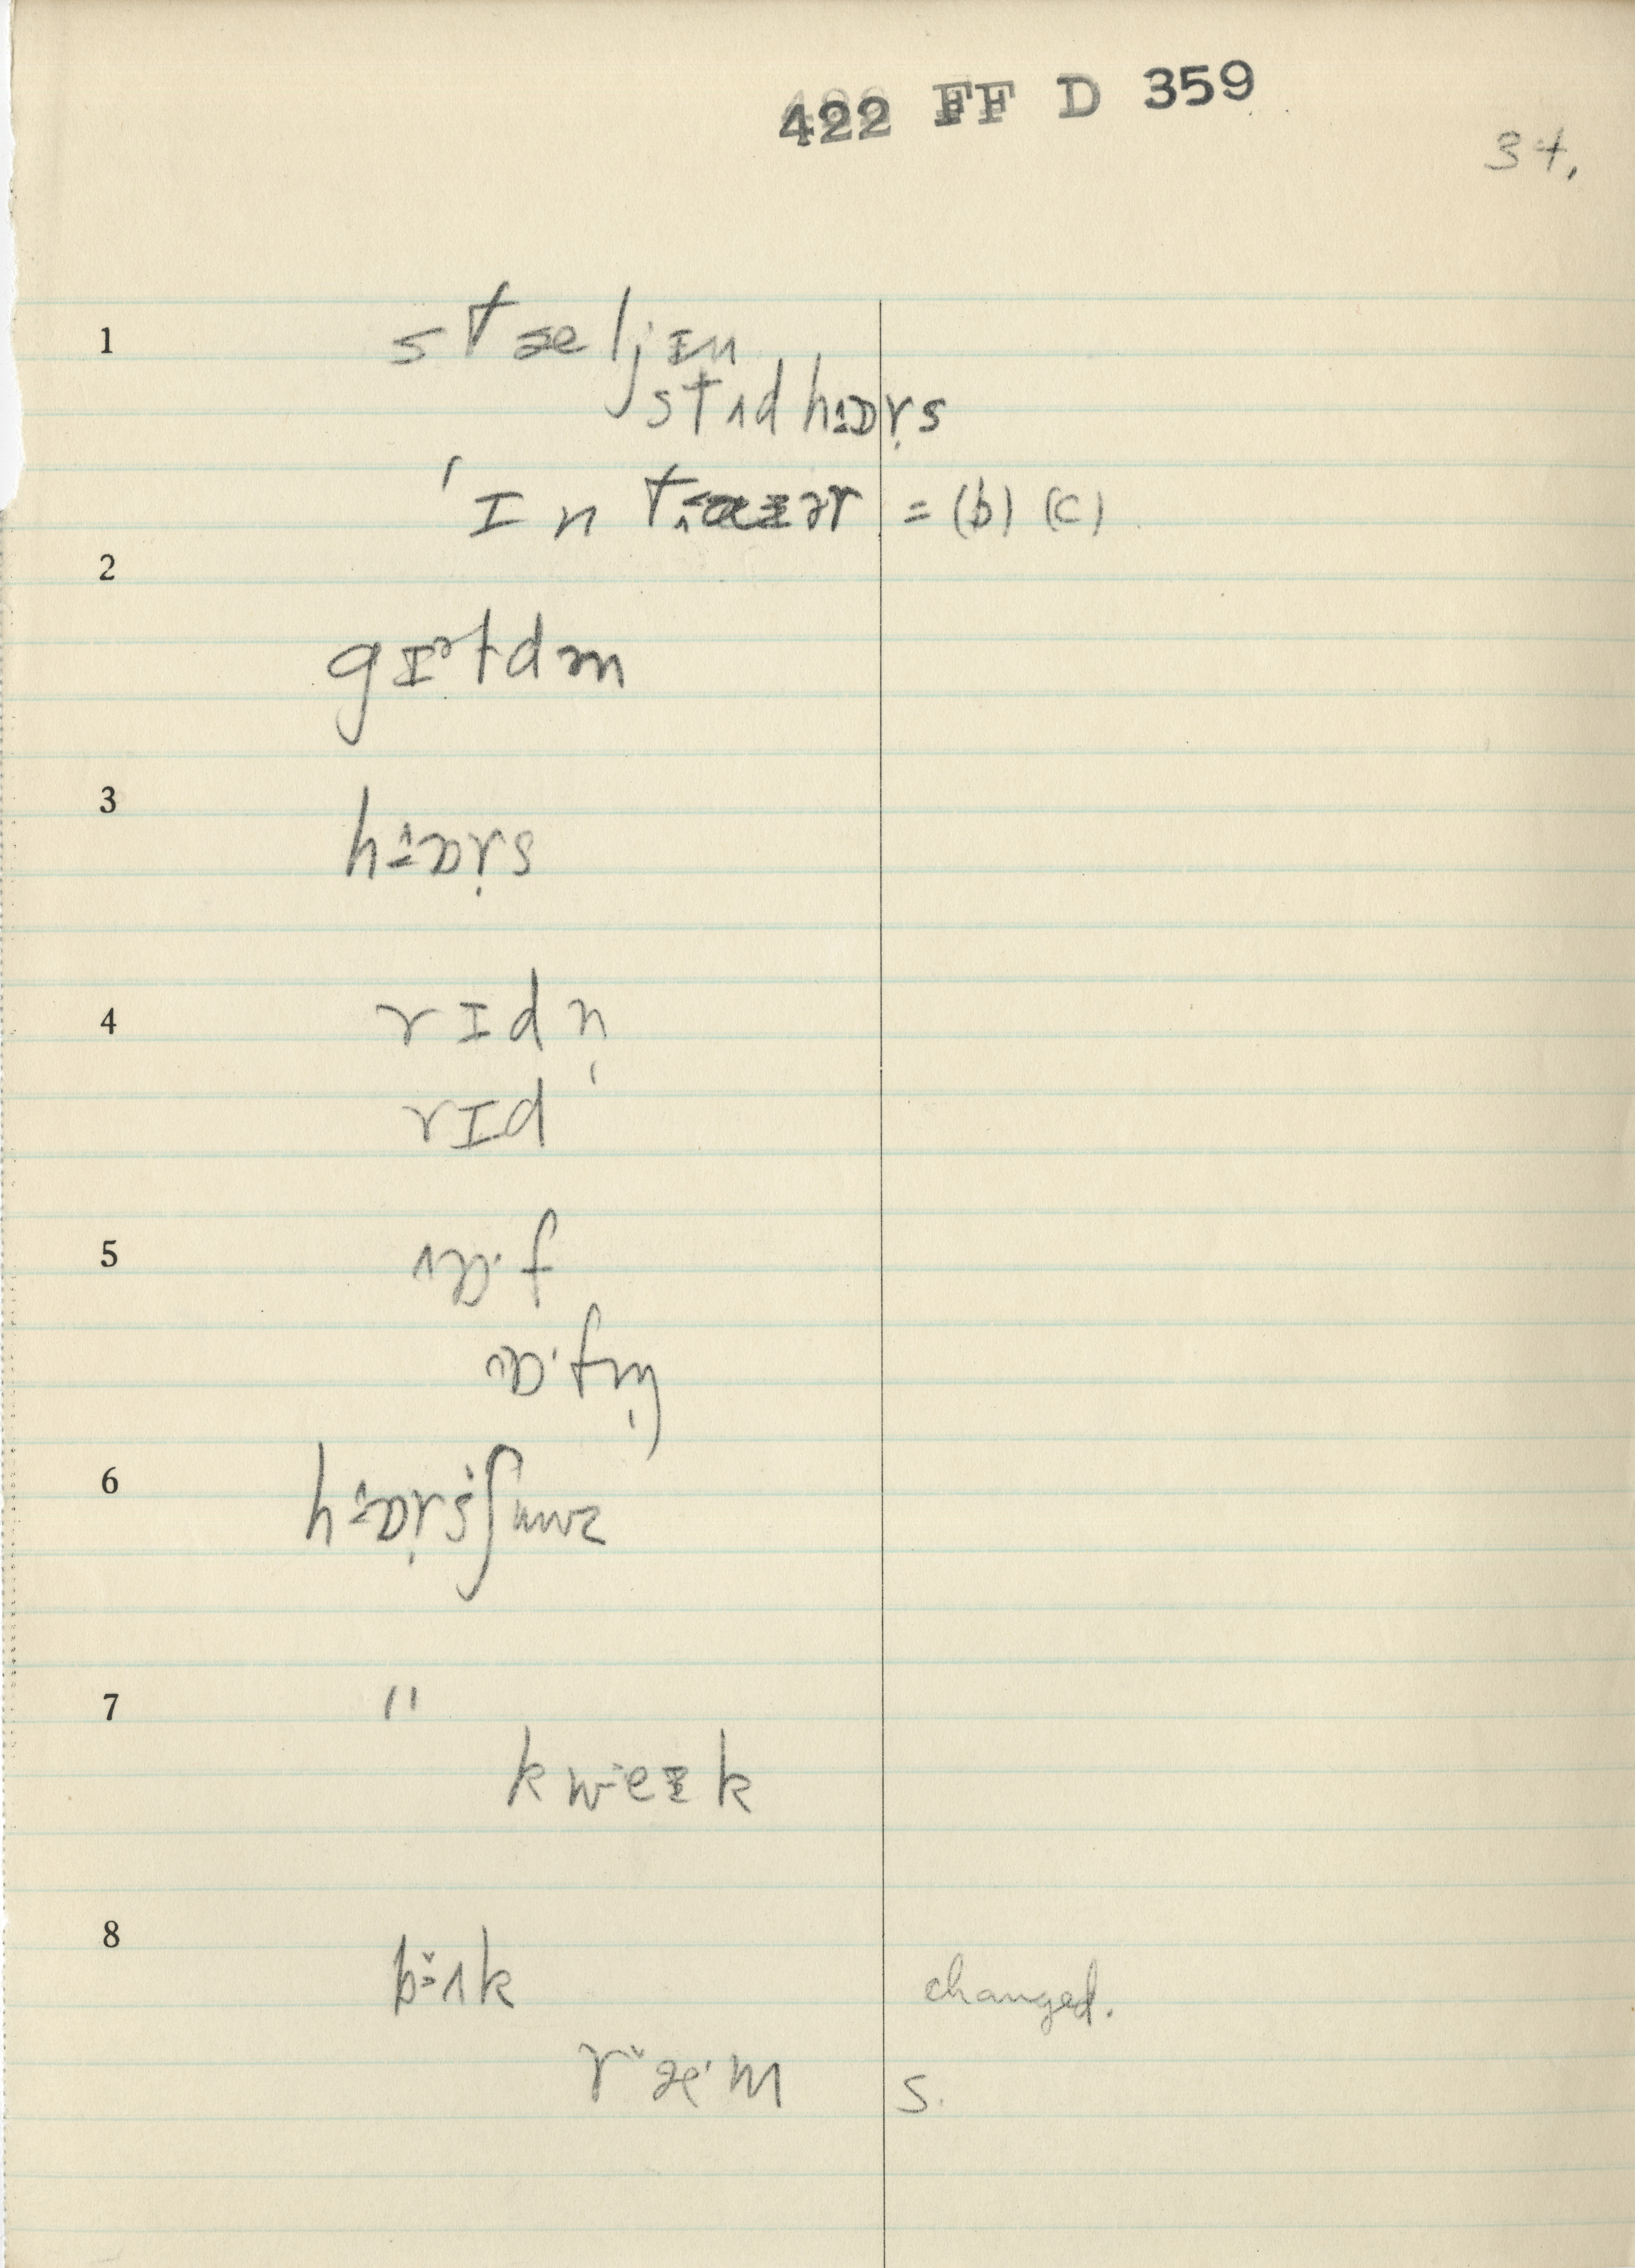 422 FF D 359
34.
1 stæljɪn
stʌd hɒr̩s
'ɪn tɑɪər = (b) (c)
2
gɪɚt dm
3 hɒr̩s
4 rɪdn̩
rɪd
5 ɒ·f
ɒ·fm̩
6 hɒr̩sʃuuz
7 "
kweɪk
8 bʌk changed.
ræ·m s.